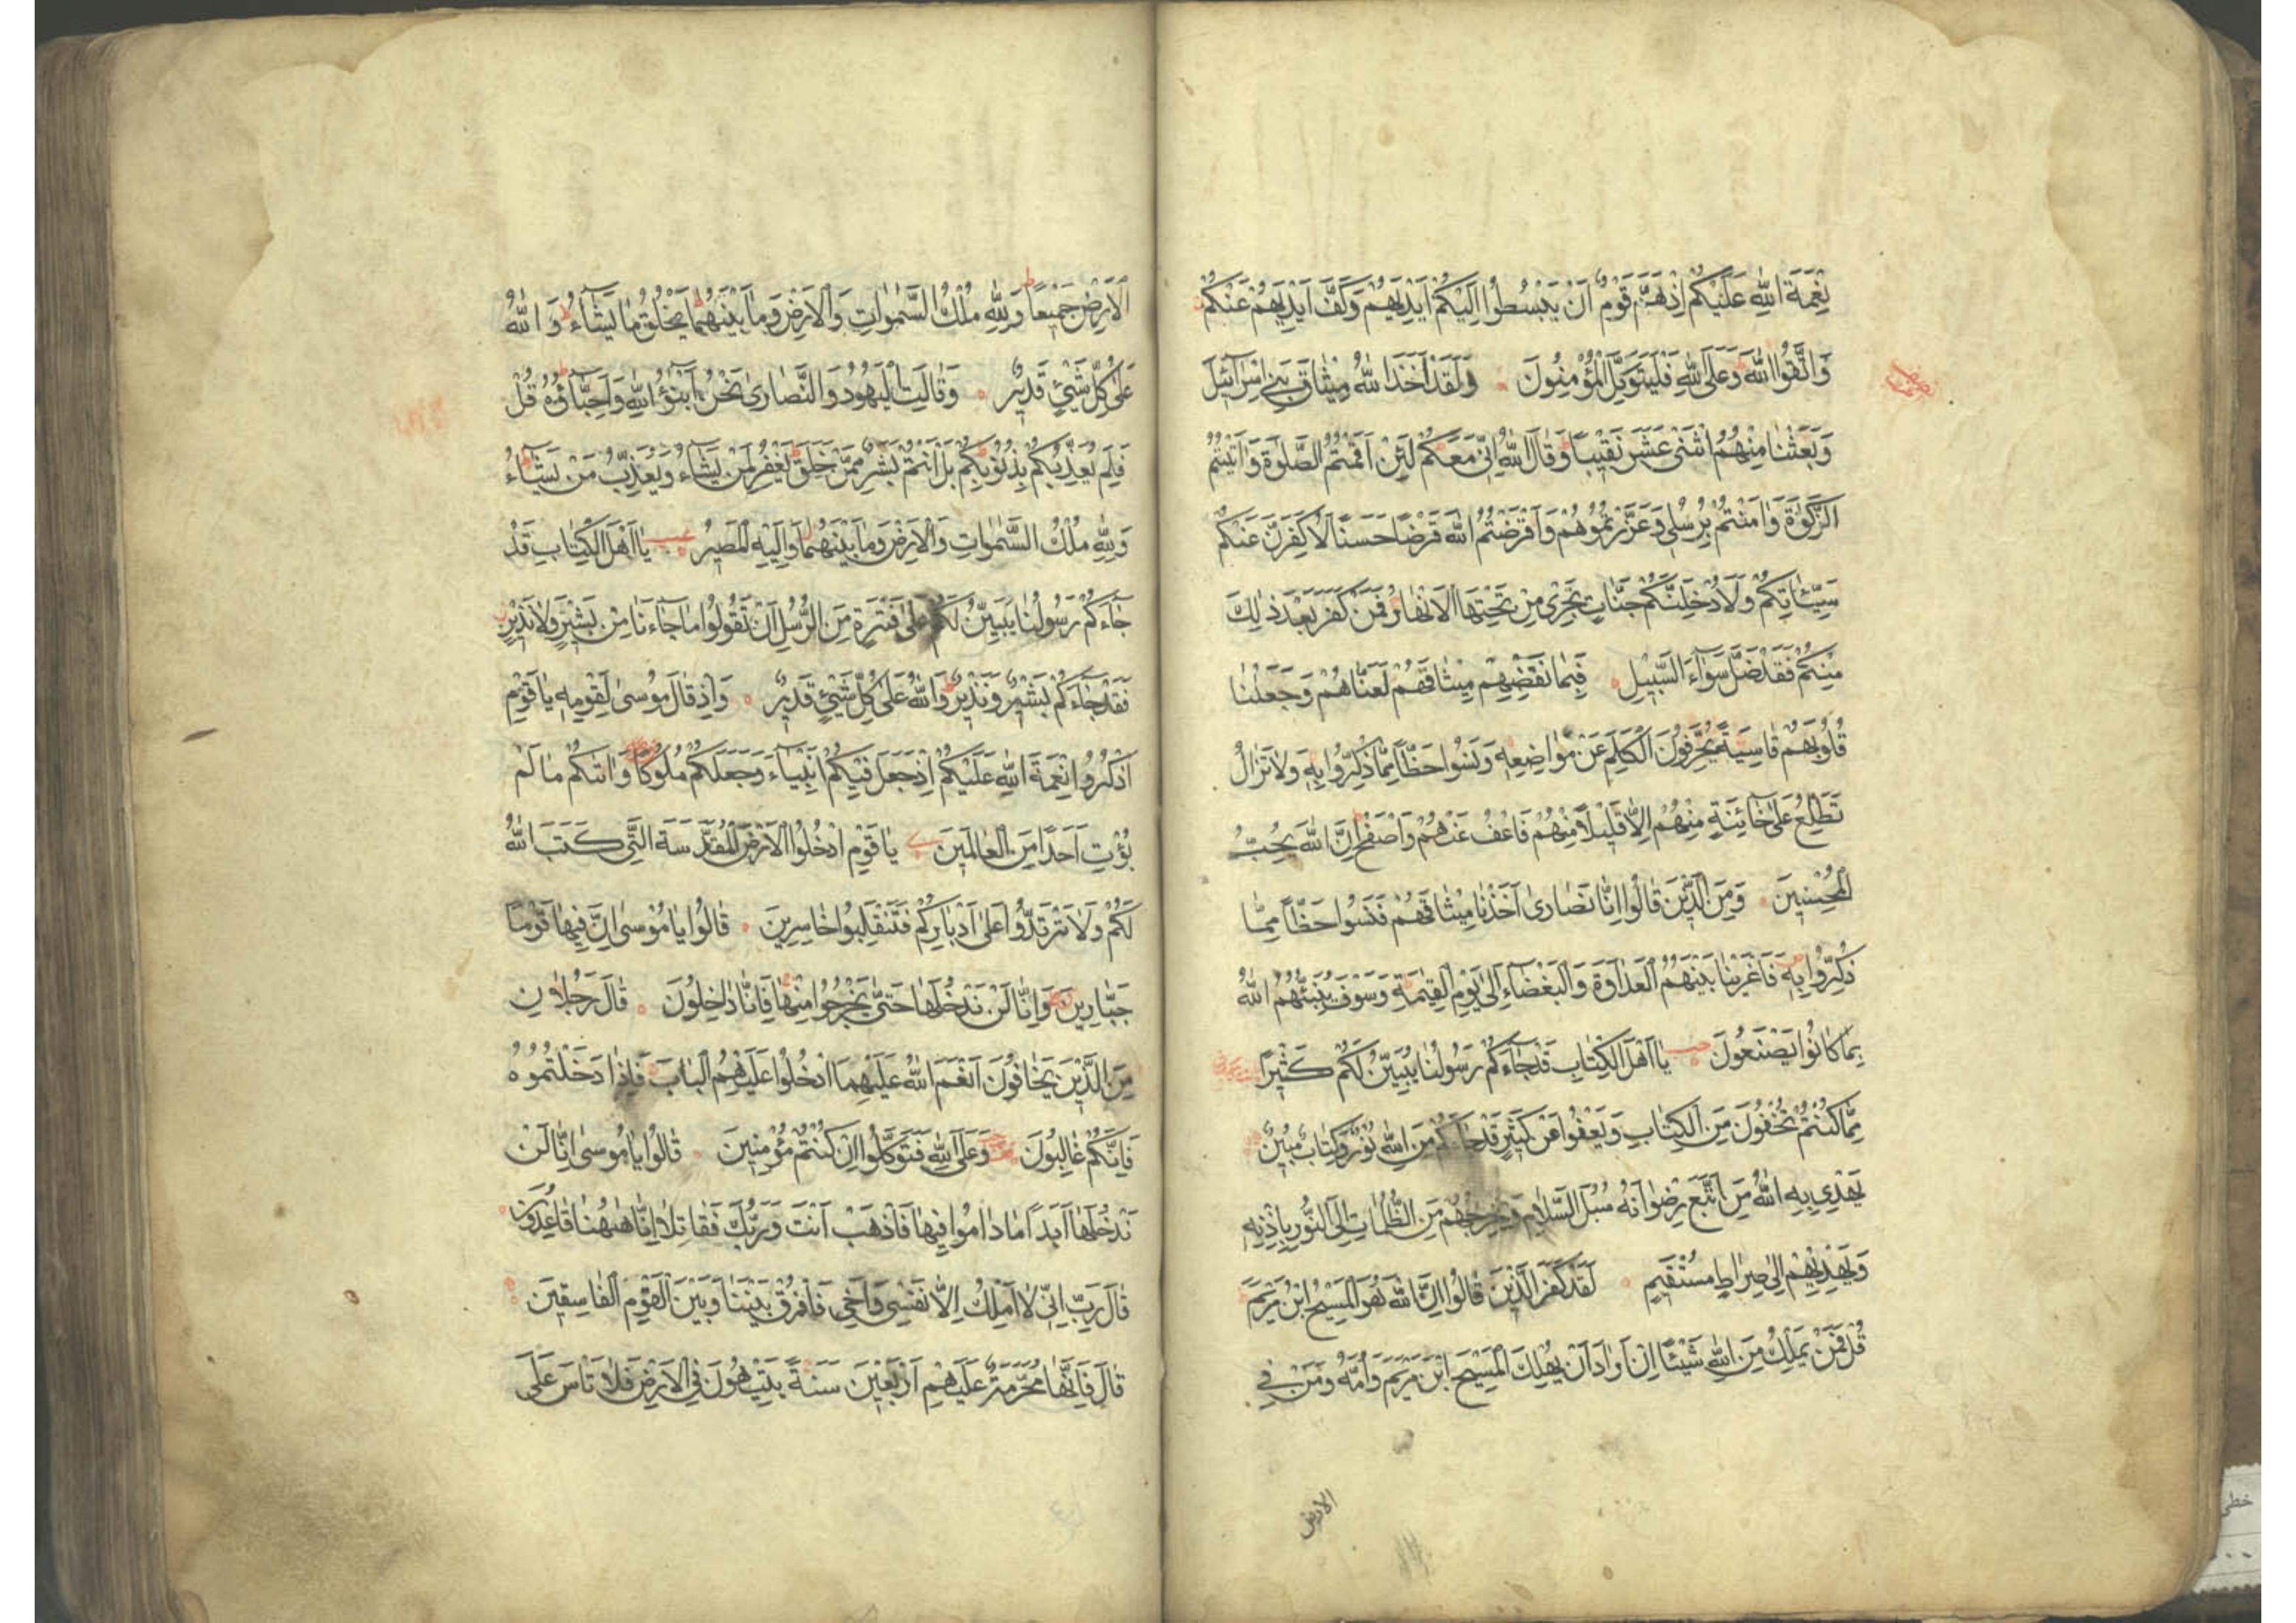 نِعْمَةَ اللّٰهِ عَلَيْكُمْ اِذْ هَمَّ قَوْمٌ اَنْ يَبْسُطُوا اِلَيْكُمْ اَيْدِيَهُمْ وَكَفَّ اَيْدِيَهُمْ عَنْكُمْ
وَاتَّقُوا اللّٰهَ وَعَلَى اللّٰهِ فَلْيَتَوَكَّلِ الْمُؤْمِنُونَ وَلَقَدْ اَخَذَ اللّٰهُ مِيْثَاقَ بَنِي اِسْرَآئِيْلَ
وَبَعَثْنَا مِنْهُمُ اثْنَيْ عَشَرَ نَقِيْبًا وَقَالَ اللّٰهُ اِنِّي مَعَكُمْ لَئِنْ اَقَمْتُمُ الصَّلٰوةَ وَاٰتَيْتُمُ
الزَّكٰوةَ وَاٰمَنْتُمْ بِرُسُلِي وَعَزَّرْتُمُوْهُمْ وَاَقْرَضْتُمُ اللّٰهَ قَرْضًا حَسَنًا لَاُكَفِّرَنَّ عَنْكُمْ
سَيِّئَاتِكُمْ وَلَاُدْخِلَنَّكُمْ جَنَّاتٍ تَجْرِي مِنْ تَحْتِهَا الْاَنْهَارُ فَمَنْ كَفَرَ بَعْدَ ذٰلِكَ
مِنْكُمْ فَقَدْ ضَلَّ سَوَآءَ السَّبِيْلِ فَبِمَا نَقْضِهِمْ مِيْثَاقَهُمْ لَعَنَّاهُمْ وَجَعَلْنَا
قُلُوْبَهُمْ قَاسِيَةً يُحَرِّفُوْنَ الْكَلِمَ عَنْ مَوَاضِعِهٖ وَنَسُوا حَظًّا مِمَّا ذُكِّرُوا بِهٖ وَلَا تَزَالُ
تَطَّلِعُ عَلٰى خَآئِنَةٍ مِنْهُمْ اِلَّا قَلِيْلًا مِنْهُمْ فَاعْفُ عَنْهُمْ وَاصْفَحْ اِنَّ اللّٰهَ يُحِبُّ
الْمُحْسِنِيْنَ وَمِنَ الَّذِيْنَ قَالُوا اِنَّا نَصَارٰى اَخَذْنَا مِيْثَاقَهُمْ فَنَسُوا حَظًّا مِمَّا
ذُكِّرُوا بِهٖ فَاَغْرَيْنَا بَيْنَهُمُ الْعَدَاوَةَ وَالْبَغْضَآءَ اِلٰى يَوْمِ الْقِيٰمَةِ وَسَوْفَ يُنَبِّئُهُمُ اللّٰهُ
بِمَا كَانُوا يَصْنَعُوْنَ يَا اَهْلَ الْكِتَابِ قَدْ جَآءَكُمْ رَسُوْلُنَا يُبَيِّنُ لَكُمْ كَثِيْرًا
مِمَّا كُنْتُمْ تُخْفُوْنَ مِنَ الْكِتَابِ وَيَعْفُوا عَنْ كَثِيْرٍ قَدْ جَآءَكُمْ مِنَ اللّٰهِ نُوْرٌ وَكِتَابٌ مُبِيْنٌ
يَهْدِي بِهِ اللّٰهُ مَنِ اتَّبَعَ رِضْوَانَهُ سُبُلَ السَّلَامِ وَيُخْرِجُهُمْ مِنَ الظُّلُمَاتِ اِلَى النُّوْرِ بِاِذْنِهٖ
وَيَهْدِيْهِمْ اِلٰى صِرَاطٍ مُسْتَقِيْمٍ لَقَدْ كَفَرَ الَّذِيْنَ قَالُوا اِنَّ اللّٰهَ هُوَ الْمَسِيْحُ ابْنُ مَرْيَمَ
قُلْ فَمَنْ يَمْلِكُ مِنَ اللّٰهِ شَيْئًا اِنْ اَرَادَ اَنْ يُهْلِكَ الْمَسِيْحَ ابْنَ مَرْيَمَ وَاُمَّهُ وَمَنْ فِي
الارض
الْاَرْضِ جَمِيْعًا وَلِلّٰهِ مُلْكُ السَّمٰوَاتِ وَالْاَرْضِ وَمَا بَيْنَهُمَا يَخْلُقُ مَا يَشَآءُ وَاللّٰهُ
عَلٰى كُلِّ شَيْئٍ قَدِيْرٌ وَقَالَتِ الْيَهُوْدُ وَالنَّصَارٰى نَحْنُ اَبْنٰؤُ اللّٰهِ وَاَحِبَّآؤُهُ قُلْ
فَلِمَ يُعَذِّبُكُمْ بِذُنُوْبِكُمْ بَلْ اَنْتُمْ بَشَرٌ مِمَّنْ خَلَقَ يَغْفِرُ لِمَنْ يَشَآءُ وَيُعَذِّبُ مَنْ يَشَآءُ
وَلِلّٰهِ مُلْكُ السَّمٰوَاتِ وَالْاَرْضِ وَمَا بَيْنَهُمَا وَاِلَيْهِ الْمَصِيْرُ يَا اَهْلَ الْكِتَابِ قَدْ
جَآءَكُمْ رَسُوْلُنَا يُبَيِّنُ لَكُمْ عَلٰى فَتْرَةٍ مِنَ الرُّسُلِ اَنْ تَقُوْلُوا مَا جَآءَنَا مِنْ بَشِيْرٍ وَلَا نَذِيْرٍ
فَقَدْ جَآءَكُمْ بَشِيْرٌ وَنَذِيْرٌ وَاللّٰهُ عَلٰى كُلِّ شَيْئٍ قَدِيْرٌ وَاِذْ قَالَ مُوْسٰى لِقَوْمِهٖ يَا قَوْمِ
اذْكُرُوا نِعْمَةَ اللّٰهِ عَلَيْكُمْ اِذْ جَعَلَ فِيْكُمْ اَنْبِيَآءَ وَجَعَلَكُمْ مُلُوْكًا وَاٰتٰكُمْ مَا لَمْ
يُؤْتِ اَحَدًا مِنَ الْعَالَمِيْنَ يَا قَوْمِ ادْخُلُوا الْاَرْضَ الْمُقَدَّسَةَ الَّتِي كَتَبَ اللّٰهُ
لَكُمْ وَلَا تَرْتَدُّوا عَلٰى اَدْبَارِكُمْ فَتَنْقَلِبُوا خَاسِرِيْنَ قَالُوا يَا مُوْسٰى اِنَّ فِيْهَا قَوْمًا
جَبَّارِيْنَ وَاِنَّا لَنْ نَدْخُلَهَا حَتّٰى يَخْرُجُوا مِنْهَا فَاِنَّا دَاخِلُوْنَ قَالَ رَجُلَانِ
مِنَ الَّذِيْنَ يَخَافُوْنَ اَنْعَمَ اللّٰهُ عَلَيْهِمَا ادْخُلُوا عَلَيْهِمُ الْبَابَ فَاِذَا دَخَلْتُمُوْهُ
فَاِنَّكُمْ غَالِبُوْنَ وَعَلَى اللّٰهِ فَتَوَكَّلُوا اِنْ كُنْتُمْ مُؤْمِنِيْنَ قَالُوا يَا مُوْسٰى اِنَّا لَنْ
نَدْخُلَهَا اَبَدًا مَا دَامُوا فِيْهَا فَاذْهَبْ اَنْتَ وَرَبُّكَ فَقَاتِلَا اِنَّا هٰهُنَا قَاعِدُوْنَ
قَالَ رَبِّ اِنِّي لَا اَمْلِكُ اِلَّا نَفْسِي وَاَخِي فَافْرُقْ بَيْنَنَا وَبَيْنَ الْقَوْمِ الْفَاسِقِيْنَ
قَالَ فَاِنَّهَا مُحَرَّمَةٌ عَلَيْهِمْ اَرْبَعِيْنَ سَنَةً يَتِيْهُوْنَ فِي الْاَرْضِ فَلَا تَاْسَ عَلَى
خطی